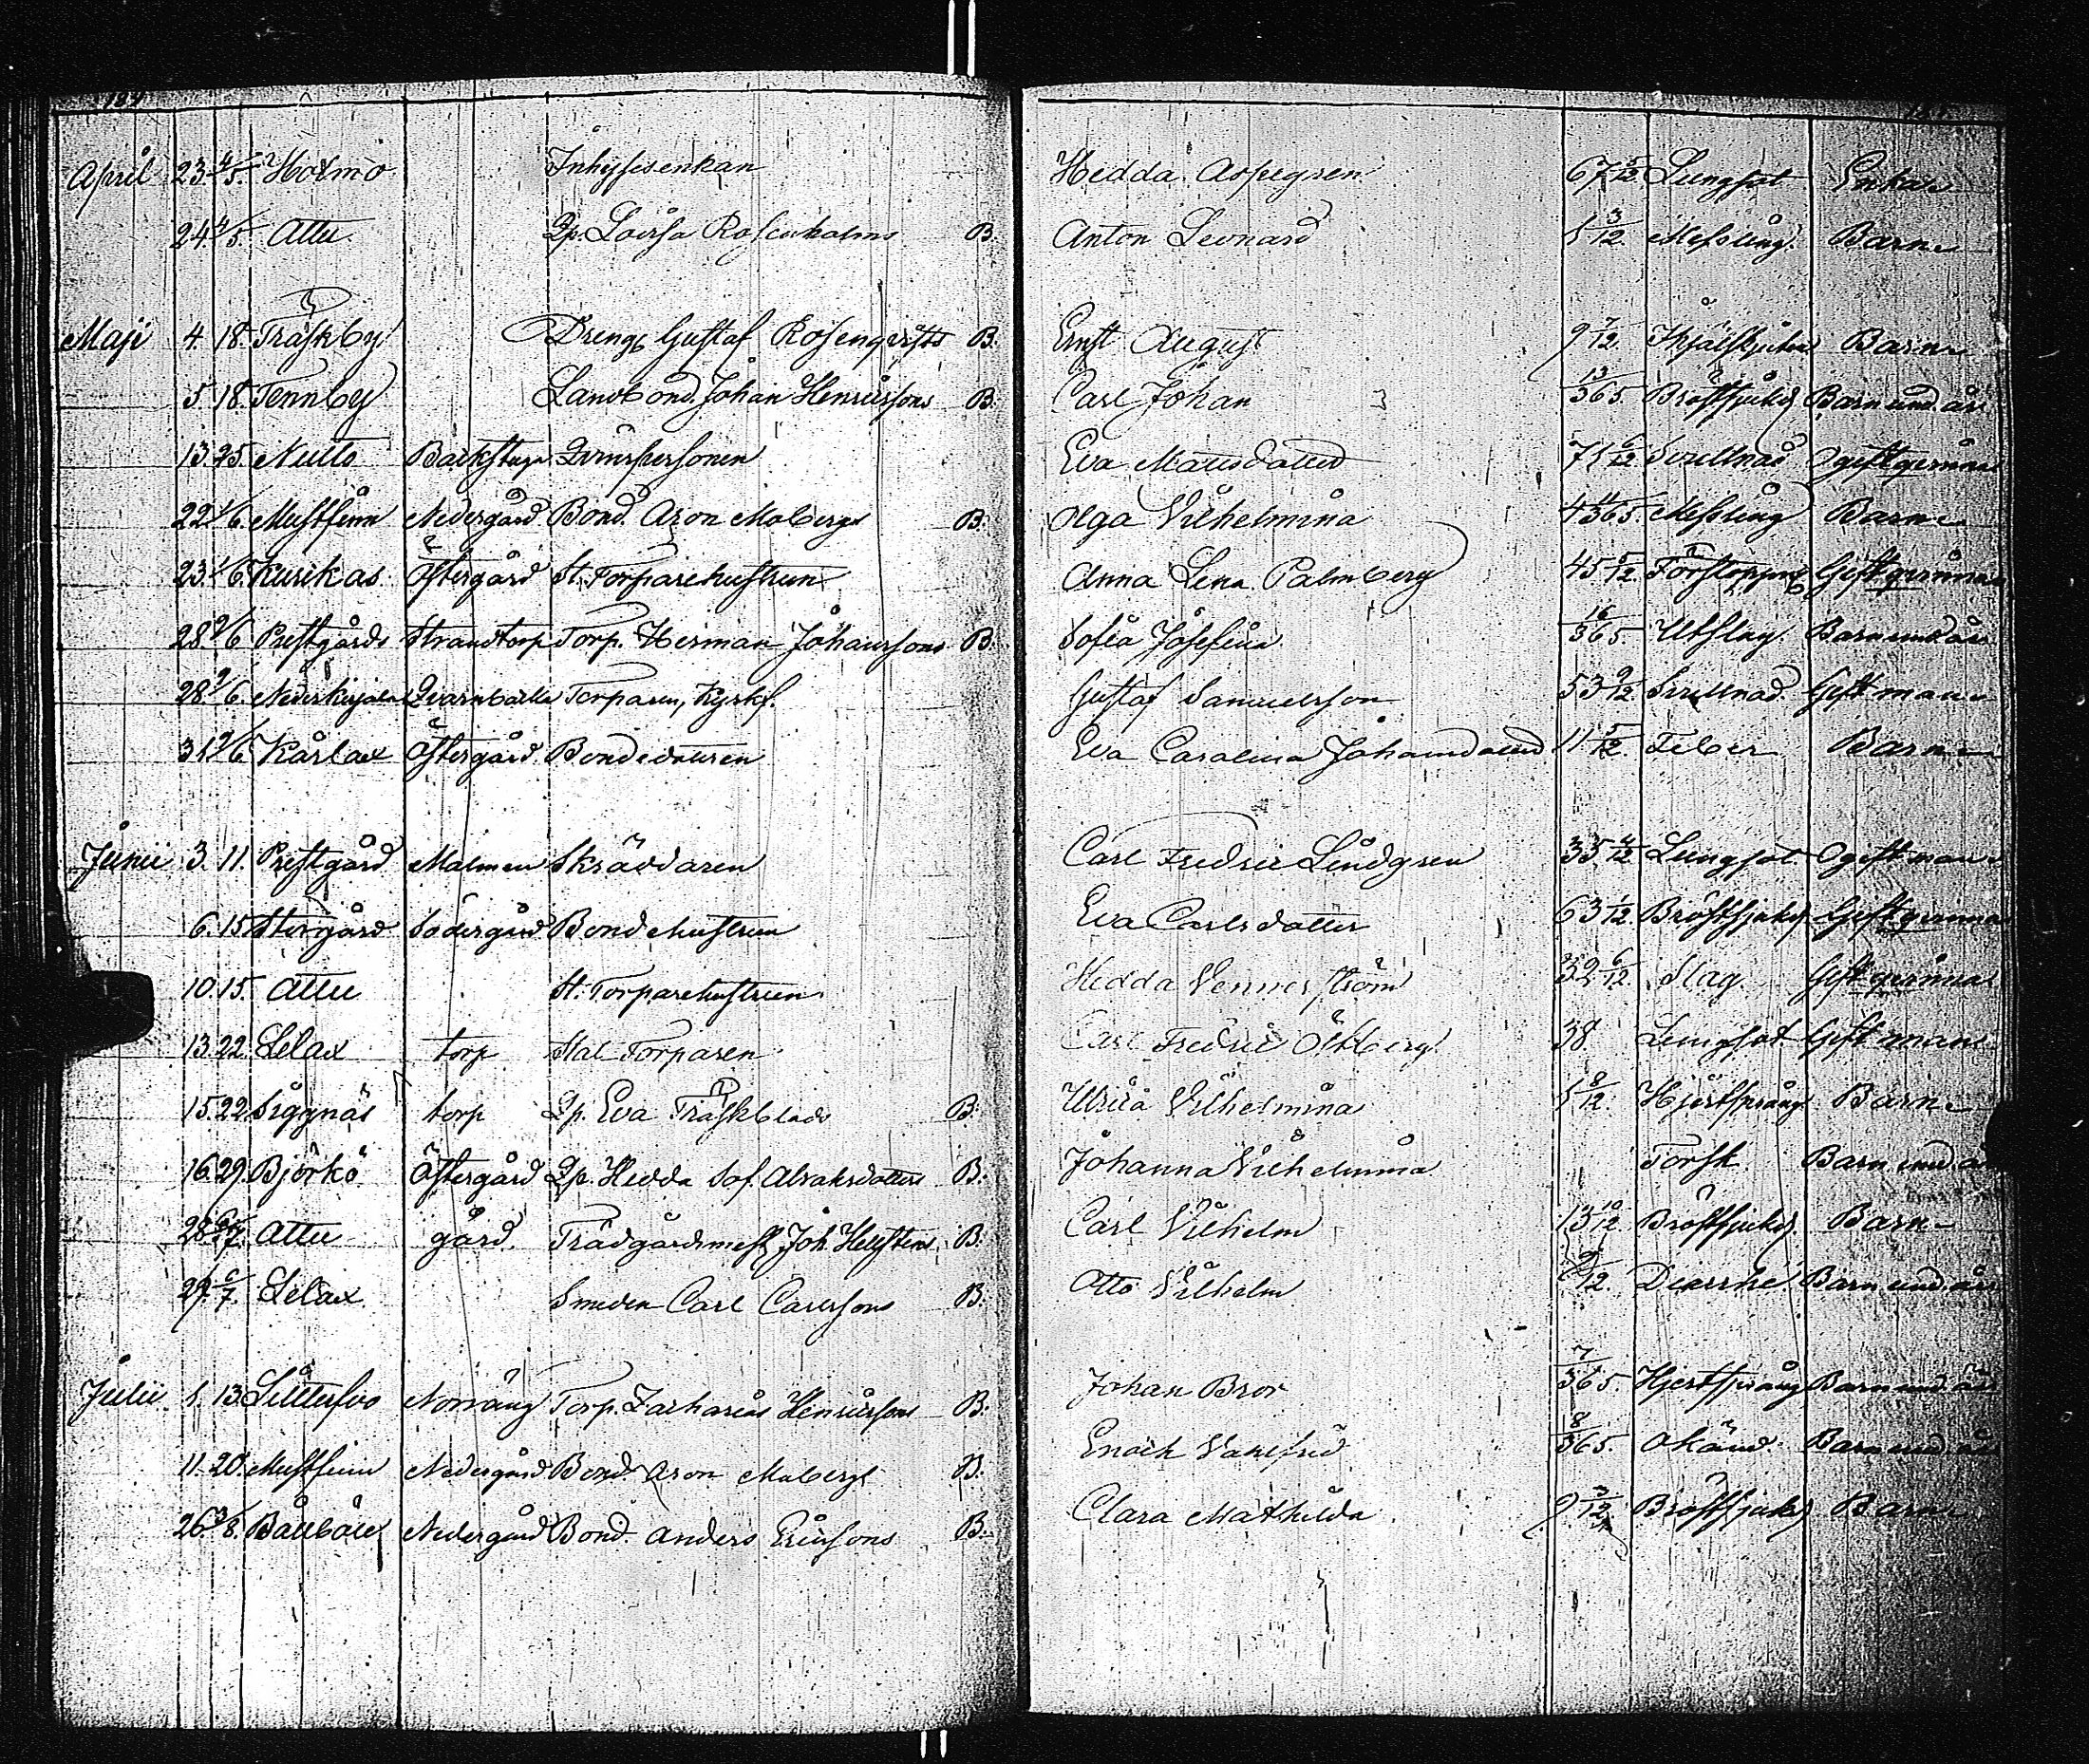 184
April 23. 4/5. Holmo Inhysesenkan Hedda Aspegren 67 5/12 Lungsot Enka
24 4/5. Attu Qp. Lovisa Rosenholms B. Anton Leonard 1 3/12. Messling. Barn
Maji 4. 18. Träskby Dreng Gustaf Rosenqvists B. Ernst August 9 7/12. Barn
5. 18. Tennby Landbond. Johan Henrikssons B. Carl Johan 13/365 Bröstsjukd Barn und. år
13. 25. Nulto Backstuga Qvinspersonen Eva Mattsdotter 71 6/12 Svullnad Ogift qvinna
22. 1/6. Mustfinn Nedergård Bond. Aron Mobergs B. Olga Vilhelmina 4 11/365 Messling Barn
23. 1/6. Kurikas Östergård St. Torparehustrun Anna Lena Palmberg 45 5/12. Förstoppng Gift qvinna
28. 2/6 Prestgårds Strandtorp Torp. Herman Johanssons B. Sofia Josefina 16/365 Utslag. Barn und. år
28. 2/6. Nederkirjala Qvarnbacka Torparen, Kyrkf. Gustaf Samuelsson 53 9/12 Svullnad. Gift man
31. 2/6 Kårlax Östergård. Bondedottren Eva Carolina Johansdotter 11 5/12. Feber Barn
Junii 3. 11. Prestgård Malmen Skräddaren Carl Fredric Lindgren 35 4/12 Lungsot Ogift man
6. 15. Storgård Södergård Bondehustrun Eva Carlsdotter 63 1/12. Bröstsjukd Gift qvinna
10. 15. Attu St. Torparehustrun Hedda Vennerström 32 6/12. Slag. Gift qvinna
13. 22. Lelax torp Stat Torparen Carl Fredric Ökberg 38 Lungsot Gift man
15. 22. Siggnäs torp Qp. Eva Träskblads B. Ulrica Vilhelmina 1 8/12. Hjertsprång Barn
16. 29. Björkö Östergård Qp. Hedda Sof. Abrahsdotters B. Johanna Vilhelmina Torsk Barn und. år
28. 6/7. Attu gård. Trädgårdsmest Joh. Hellstens B. Carl Vilhelm 13 10/12. Bröstsjukd. Barn
29. 6/7. Lelax Smeden Carl Carlssons B. Otto Vilhelm 9/12. Diarrhé. Barn und. år
Julii 1. 13. Norräng Torp. Zacharias Henrikssons B. Johan Bror 7/365. Hjertsprång Barn und. år
11. 20. Mustfinn Nedergård Bond. Aron Mobergs B. Enoch Valfrid 8/365. Okänd. Barn und. år
26. 3/8. Båtböle Nedergård Bond. Anders Erikssons B. Clara Mathilda 9 3/12. Bröstsjukd Barn